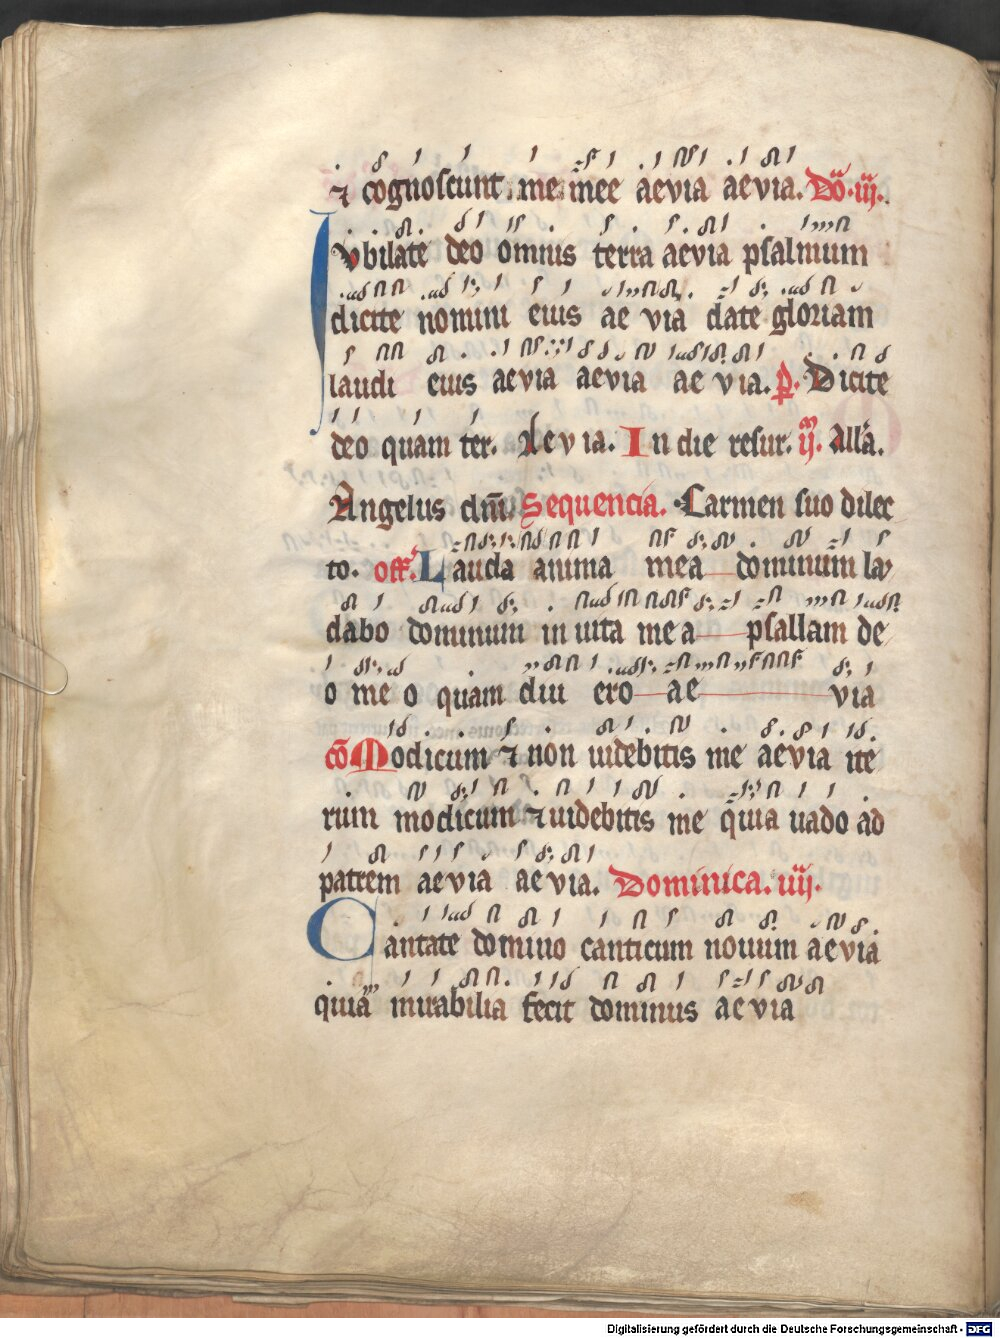 ⁊ cognoscunt me mee aevia aevia. Do. iij.
Iubilate deo omnis terra aevia psalmum
dicite nomini eius ae via date gloriam
laudi eius aevia aevia ae via. p. Dicite
deo quam ter. Aevia. In die resur. ij. All'a.
Angelus dni. Sequencia. Carmen suo dilec
to. off. Lauda anima mea dominum la
dabo dominum in uita mea psallam de
o me o quam diu ero ae via
cō Modicum ⁊ non uidebitis me aevia ite
rum modicum ⁊ uidebitis me quia uado ad
patrem aevia aevia. Dominica. iiij.
Cantate domino canticum nouum aevia
quia mirabilia fecit dominus aevia
Digitalisierung gefördert durch die Deutsche Forschungsgemeinschaft - DFG